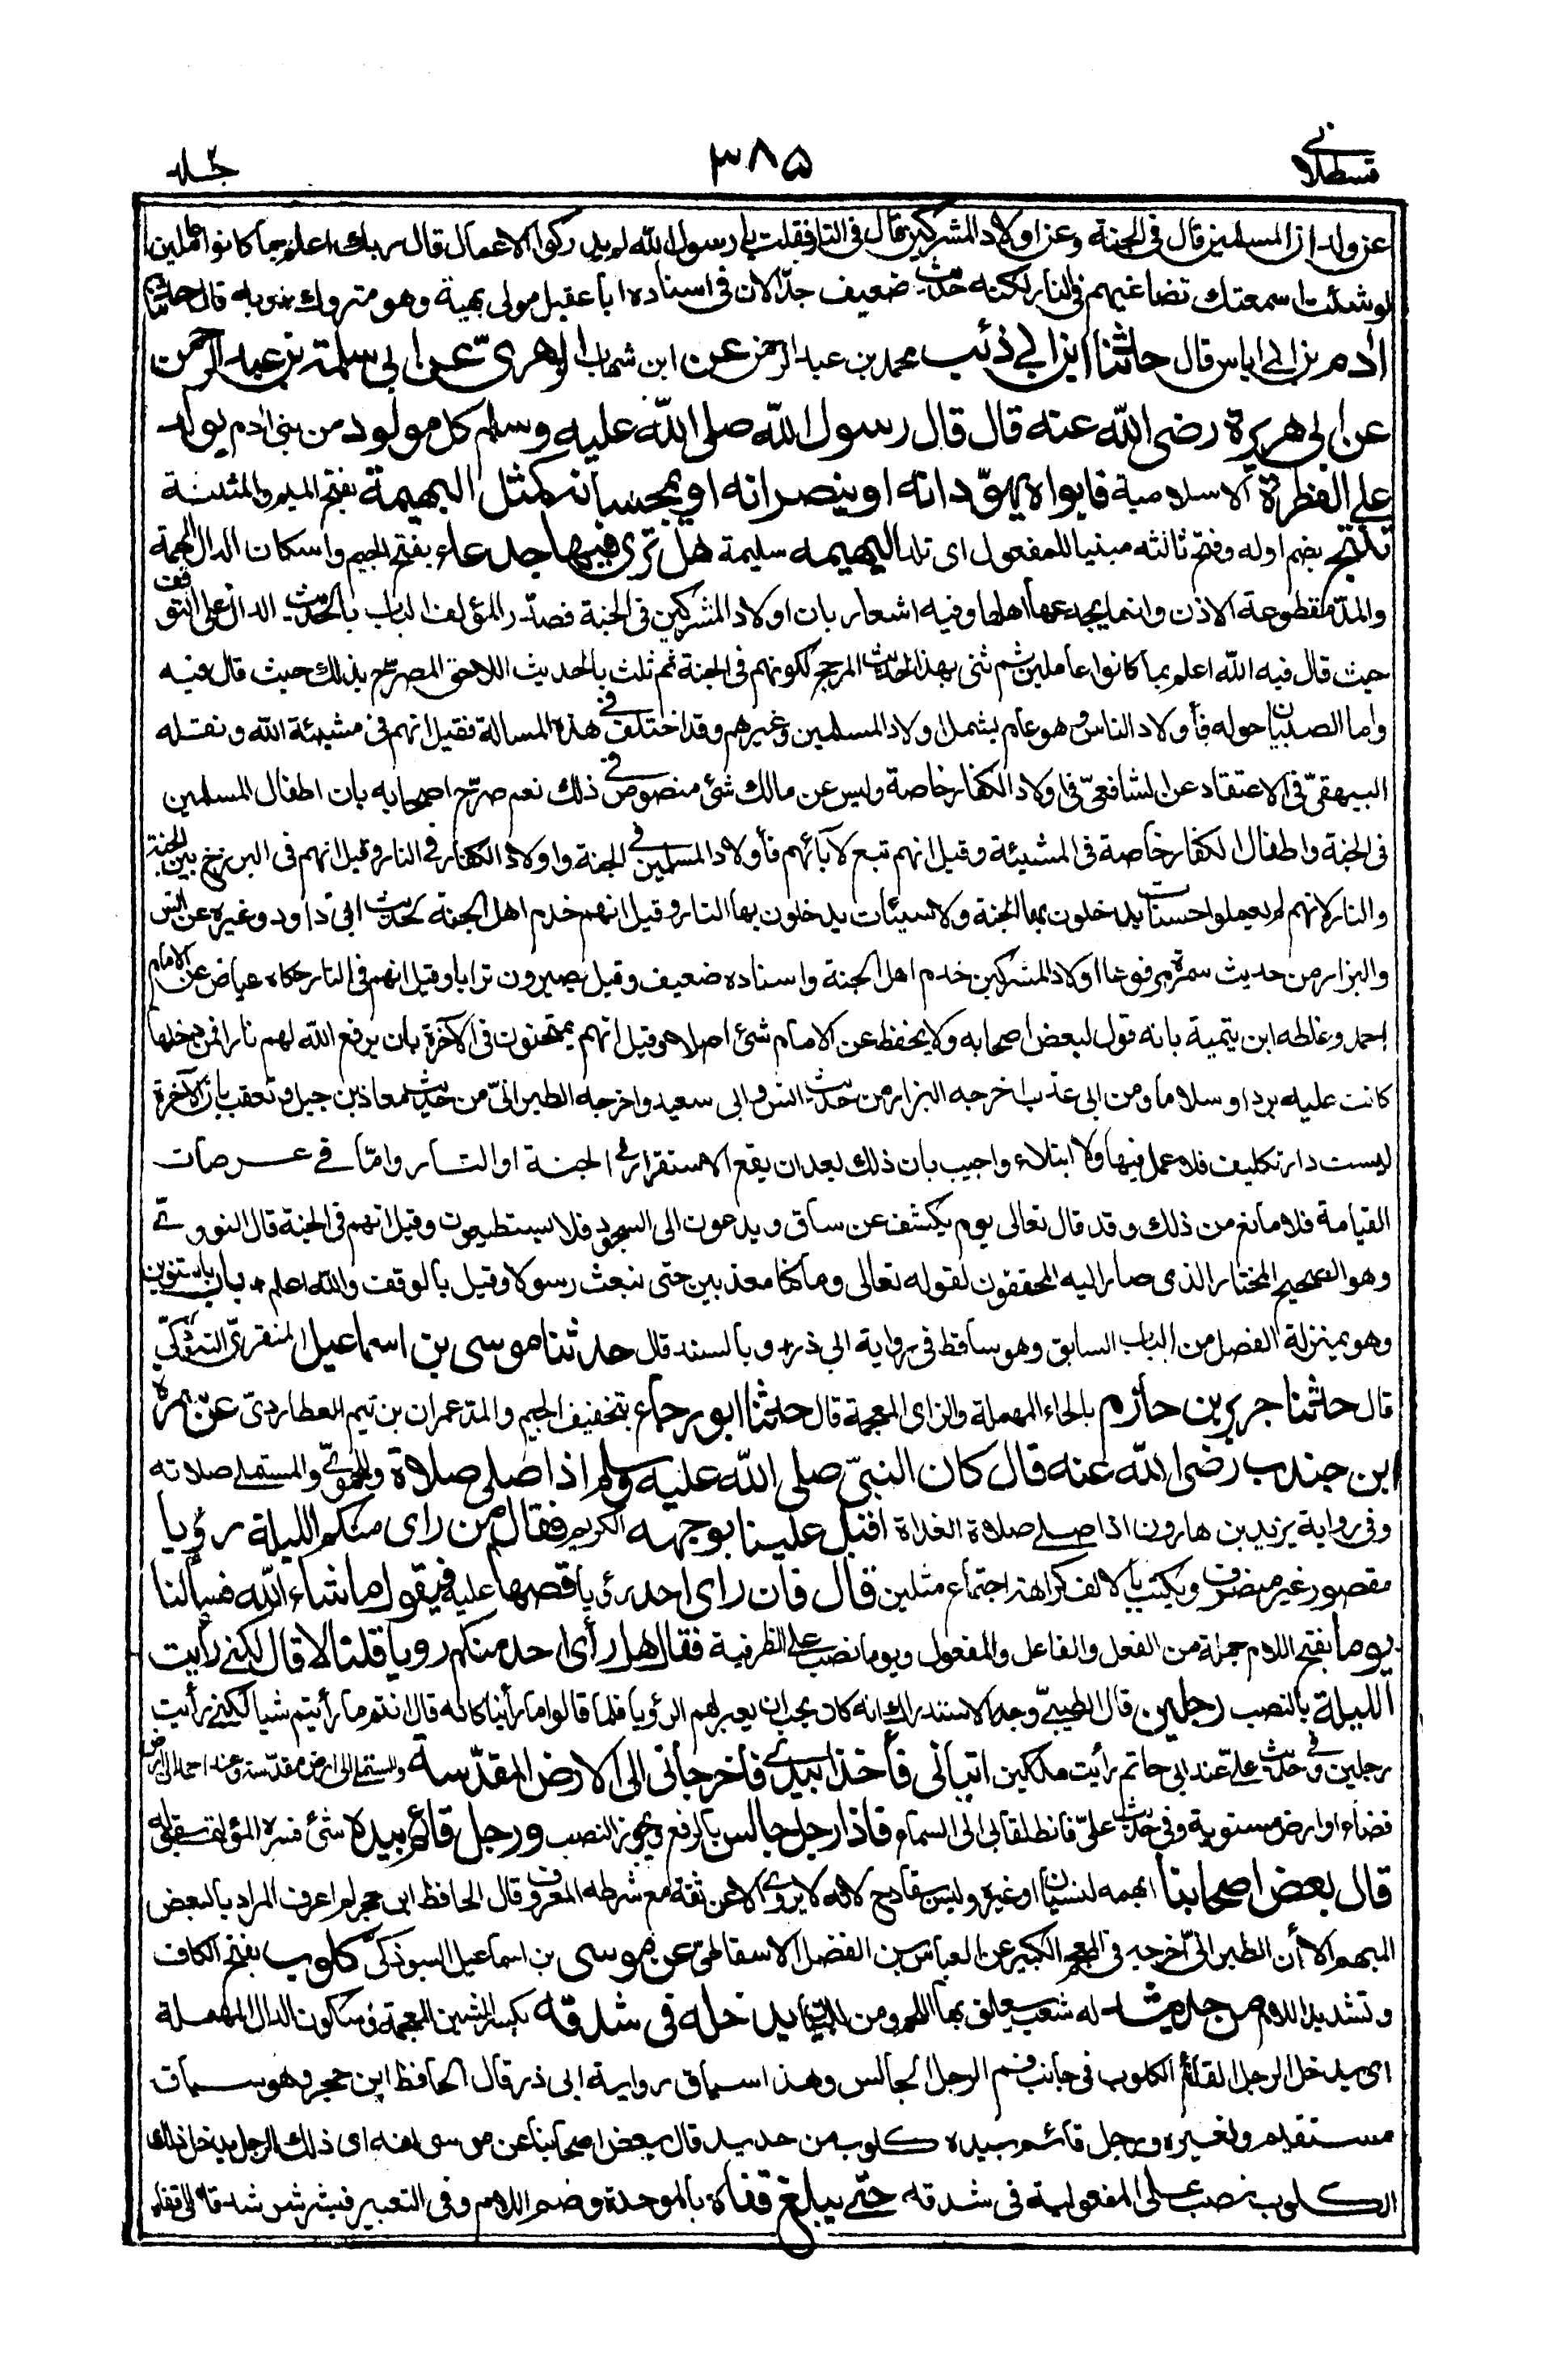 قسطلانی ٣٨٥ جلد ٢
عن ولدان المسلمين قال فى الجنة وعن اولاد المشركين قال فى النار فقلت يا رسول الله لم يدركوا الاعمال قال ربك اعلم بما كانوا عاملين
لو شئت اسمعتك تضاغيهم فى النار لكنه حديث ضعيف جدا لان فى اسناده ابا عقيل مولى بهية وهو متروك وبه قال حدثنا
ادم بن ابى اياس قال حدثنا ابن ابى ذئب محمد بن عبد الرحمن عن ابن شهاب الزهرىّ عن ابى سلمة بن عبد الرحمن
عن ابى هريرة رضى الله عنه قال قال رسول الله صلى الله عليه وسلم كل مولود من بنى ادم يولد
على الفطرة الاسلامية فابواه يهوّدانه او ينصرانه او يمجسانه كمثل البهيمة بفتح الميم والمثلثة
تنتج بضم اوله وفتح ثالثه مبنيا للمفعول اى تلد البهيمه سليمة هل ترى فيها جدعاء بفتح الجيم واسكان الدال المهملة
والمدّ مقطوعة الاذن وانما يجدعها اهلها وفيه اشعار بان اولاد المشركين فى الجنة فصدّر المؤلف الباب بالحديث الدال على التوقف
حيث قال فيه الله اعلم بما كانوا عاملين ثم ثنى بهذا الحديث المرجح لكونهم فى الجنة ثم ثلث بالحديث اللاحق المصرّح بذلك حيث قال فيه
واما الصبيان حوله فأولاد الناس وهو عام يشمل اولاد المسلمين وغيرهم وقد اختلف فى هذه المسالة فقيل انهم فى مشيئة الله ونقله
البيهقىّ فى الاعتقاد عن الشافعىّ فى اولاد الكفار خاصة وليس عن مالك شئ منصوص فى ذلك نعم صرّح اصحابه بان اطفال المسلمين
فى الجنة واطفال الكفار خاصة فى المشيئة وقيل انهم تبع لآبائهم فأولاد المسلمين فى الجنة واولاد الكفار فى النار وقيل انهم فى البرزخ بين الجنة
والنار لانهم لم يعملوا حسنات يدخلون بها الجنة ولا سيئات يدخلون بها النار وقيل انهم خدم اهل الجنة لحديث ابى داود وغيره عن انس
والبزار من حديث سمرة مرفوعا اولاد المشركين خدم اهل الجنة واسناده ضعيف وقيل يصيرون ترابا وقيل انهم فى النار حكاه عياض عن الامام
احمد وغلطه ابن تيمية بانه قول لبعض اصحابه ولا يحفظ عن الامام شئ اصلا وقيل انهم يمتحنون فى الآخرة بان يرفع الله لهم نارا فمن دخلها
كانت عليه بردا وسلاما ومن ابى عذب اخرجه البزار من حديث انس وابى سعيد واخرجه الطبرانىّ من حديث معاذ بن جبل وتعقب بان الآخرة
ليست دار تكليف فلا عمل فيها ولا ابتلاء واجيب بان ذلك بعد ان يقع الاستقرار فى الجنة او النار وامّا فى عرصات
القيامة فلا مانع من ذلك وقد قال تعالى يوم يكشف عن ساق ويدعون الى السجود فلا يستطيعون وقيل انهم فى الجنة قال النووىّ
وهو الصحيح المختار الذى صار اليه المحققون لقوله تعالى وما كنا معذبين حتى نبعث رسولا وقيل بالوقف والله اعلم * باب بالتنوين
وهو بمنزلة الفصل من الباب السابق وهو ساقط فى رواية ابى ذر * وبالسند قال حدثنا موسى بن اسماعيل المنقرىّ التبوذكىّ
قال حدثنا جرير بن حازم بالحاء المهملة والزاى المعجمة قال حدثنا ابو رجاء بتخفيف الجيم والمد عمران بن تيم العطاردىّ عن سمرة
ابن جندب رضى الله عنه قال كان النبىّ صلى الله عليه وسلم اذا صلى صلاة وللحموىّ والمستملى صلاته
وفى رواية يزيد بن هارون اذا صلى صلاة الغداة اقبل علينا بوجهه الكريم فقال من راى منكم الليلة رؤيا
مقصور غير منصرف ويكتب بالالف كراهة اجتماع مثلين قال فان راى احد رؤيا قصها عليه فيقول ما شاء الله فسألنا
يوما بفتح اللام جملة من الفعل والفاعل والمفعول ويوما نصب على الظرفية فقال هل رأى احد منكم رويا قلنا لا قال لكنى رأيت
الليلة بالنصب رجلين قال الطيبىّ وجه الاستدراك انه كان يحب ان يعبر لهم الرؤيا فلما قالوا ما رأينا كانه قال انتم ما رأيتم شيا لكنى رأيت
رجلين وفى حديث علىّ عند ابى حاتم رأيت ملكين اتيانى فأخذا بيدى فأخرجانى الى الارض المقدّسة وللمستملى الى ارض مقدّسة وعند احمد الى ارض
فضاء او ارض مستوية وفى حديث علىّ فانطلقا بى الى السماء فاذا رجل جالس بالرفع ويجوز النصب ورجل قائم بيده شئ فسره المؤلف بقوله
قال بعض اصحابنا ابهمه لنسيان او غيره وليس بقادح لانه لا يروى الا عن ثقة مع شرطه المعروف قال الحافظ ابن حجر لم اعرف المراد بالبعض
المبهم الا أن الطبرانىّ اخرجه فى المعجم الكبير عن العباس بن الفضل الاسقاطىّ عن موسى بن اسماعيل التبوذكىّ كلوب بفتح الكاف
وتشديد اللام من حديد له شعب يعلق بها اللحم ومن للبيان يدخله فى شدقه بكسر الشين المعجمة وسكون الدال المهملة
اى يدخل الرجل القائم الكلوب فى جانب فم الرجل الجالس وهذا سياق رواية ابى ذر قال الحافظ ابن حجر وهو سياق
مستقيم ولغيره ورجل قائم بيده كلوب من حديد قال بعض اصحابنا عن موسى انه اى ذلك الرجل يدخل ذلك
الكلوب نصب على المفعولية فى شدقه حتى يبلغ قفاه بالموحدة وضم اللام وفى التعبير فيشرشر شدقه الى قفاه